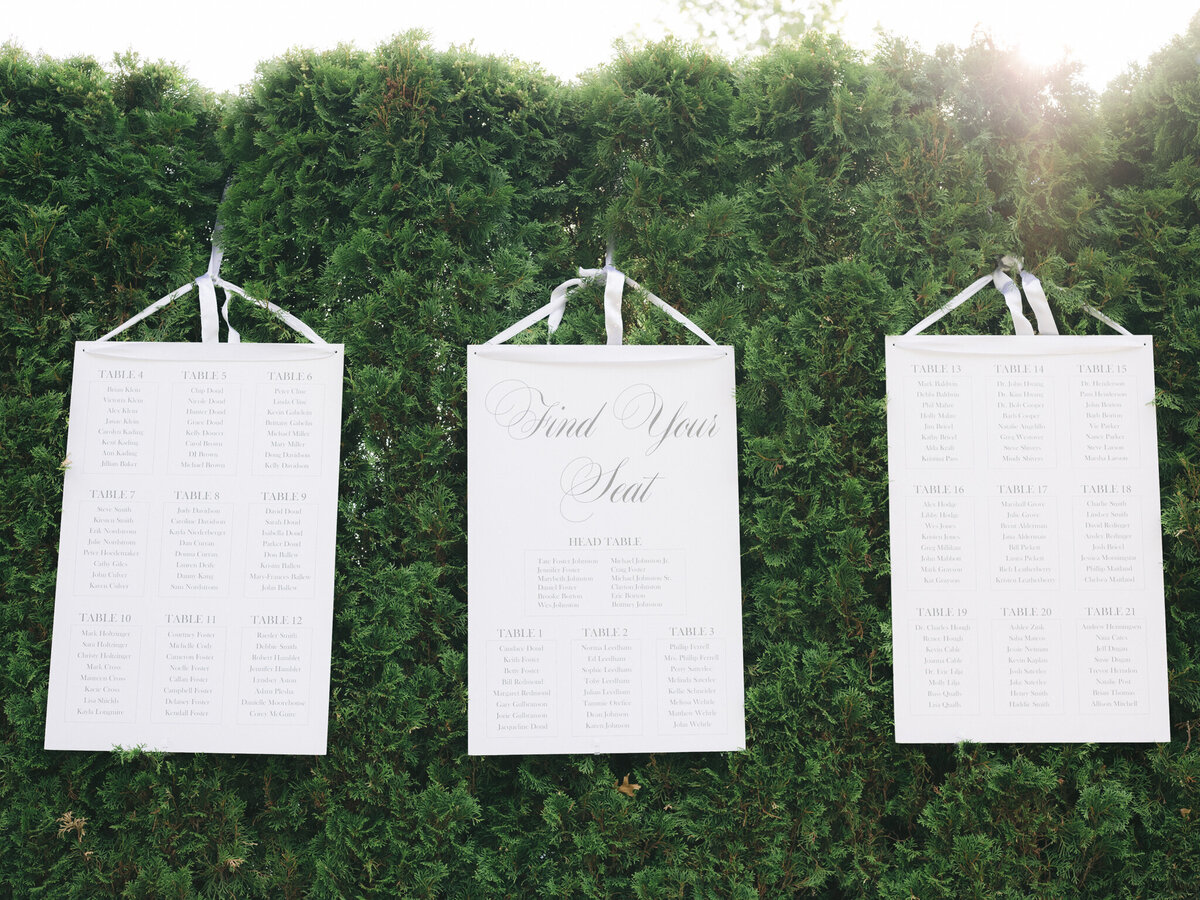 TABLE 4
Brian Klein
Victoria Klein
Alex Klein
Jamie Klein
Carolyn Kading
Kent Kading
Ann Kading
Jillian Baker
TABLE 5
Chip Doud
Nicole Doud
Hunter Doud
Grace Doud
Kelly Doucey
Carol Brown
DJ Brown
Michael Brown
TABLE 6
Peter Cline
Linda Cline
Kevin Gabelein
Brittany Gabelein
Michael Miller
Mary Miller
Doug Davidson
Kelly Davidson
TABLE 7
Steve Smith
Kirsten Smith
Erik Nordstrom
Julie Nordstrom
Peter Hoedemaker
Cathy Giles
John Culver
Karen Culver
TABLE 8
Judy Davidson
Caroline Davidson
Kayla Niederberger
Dan Curran
Donna Curran
Lauren Deife
Danny Kang
Sara Nordstrom
TABLE 9
David Doud
Sarah Doud
Isabella Doud
Parker Doud
Don Ballew
Kristin Ballew
Mary-Frances Ballew
John Ballew
TABLE 10
Mark Holtzinger
Sara Holtzinger
Christy Holtzinger
Mark Cross
Maureen Cross
Kacie Cross
Lisa Shields
Kayla Longmire
TABLE 11
Courtney Foster
Michelle Cody
Cameron Foster
Noelle Foster
Callan Foster
Campbell Foster
Delaney Foster
Kendall Foster
TABLE 12
Raesler Smith
Debbie Smith
Robert Hamblet
Jennifer Hamblet
Lyndset Aston
Adam Plesha
Danielle Moorehouse
Corey McGuire
Find Your
Seat
HEAD TABLE
Tate Foster Johnston
Jennifer Foster
Marybeth Johnston
Daniel Foster
Brooke Borton
Wes Johnston
Michael Johnston Jr.
Craig Foster
Michael Johnston Sr.
Clayton Johnston
Eric Borton
Britney Johnston
TABLE 1
Candace Doud
Keith Foster
Betty Foster
Bill Redmond
Margaret Redmond
Gary Galbranson
Jane Galbranson
Jacqueline Doud
TABLE 2
Norma Leedham
Ed Leedham
Sophie Leedham
Toby Leedham
Julian Leedham
Tammie Orefice
Dean Johnson
Karen Johnson
TABLE 3
Philip Ferrell
Mrs. Philip Ferrell
Perry Satterlee
Melinda Saterlee
Kellie Schneider
Melissa Wehrle
Matthew Wehrle
John Wehrle
TABLE 13
Mark Baldwin
Debbi Baldwin
Phil Mahre
Holly Mahre
Jim Brieel
Kathy Brieel
Alda Kraft
Kristina Pass
TABLE 14
Dr. John Hwang
Dr. Kara Hwang
Dr. Bob Cooper
Barb Cooper
Natalie Angelillo
Greg Westover
Steve Shivers
Mindy Shivers
TABLE 15
Dr. Henderson
Pam Henderson
John Borton
Barb Borton
Vic Parker
Nancy Parker
Steve Larson
Marsha Larson
TABLE 16
Alex Hodge
Libby Hodge
Wes Jones
Kristen Jones
Greg Millikan
John Mabbott
Mark Grayson
Kat Grayson
TABLE 17
Marshall Grove
Julie Grove
Brent Alderman
Jana Alderman
Bill Pickett
Laura Pickett
Rich Leatherberry
Kristen Leatherberry
TABLE 18
Charlie Smith
Lindsey Smith
David Redinger
Ansley Redinger
Josh Brieel
Jessica Morningstar
Phillip Maitland
Chelsea Maitland
TABLE 19
Dr. Charles Hough
Renee Hough
Kevin Cable
Joanna Cable
Dr. Eric Lilja
Molly Lilja
Russ Qualls
Lisa Qualls
TABLE 20
Ashlee Zink
Saba Marcus
Jessie Nemeam
Kevin Kaplan
Josh Saterlee
Jake Saterlee
Henry Smith
Haddie Smith
TABLE 21
Andrew Hemmingsen
Nana Cates
Jeff Dugan
Susie Dugan
Trevor Herndon
Natalie Post
Brian Thomas
Allison Mitchell